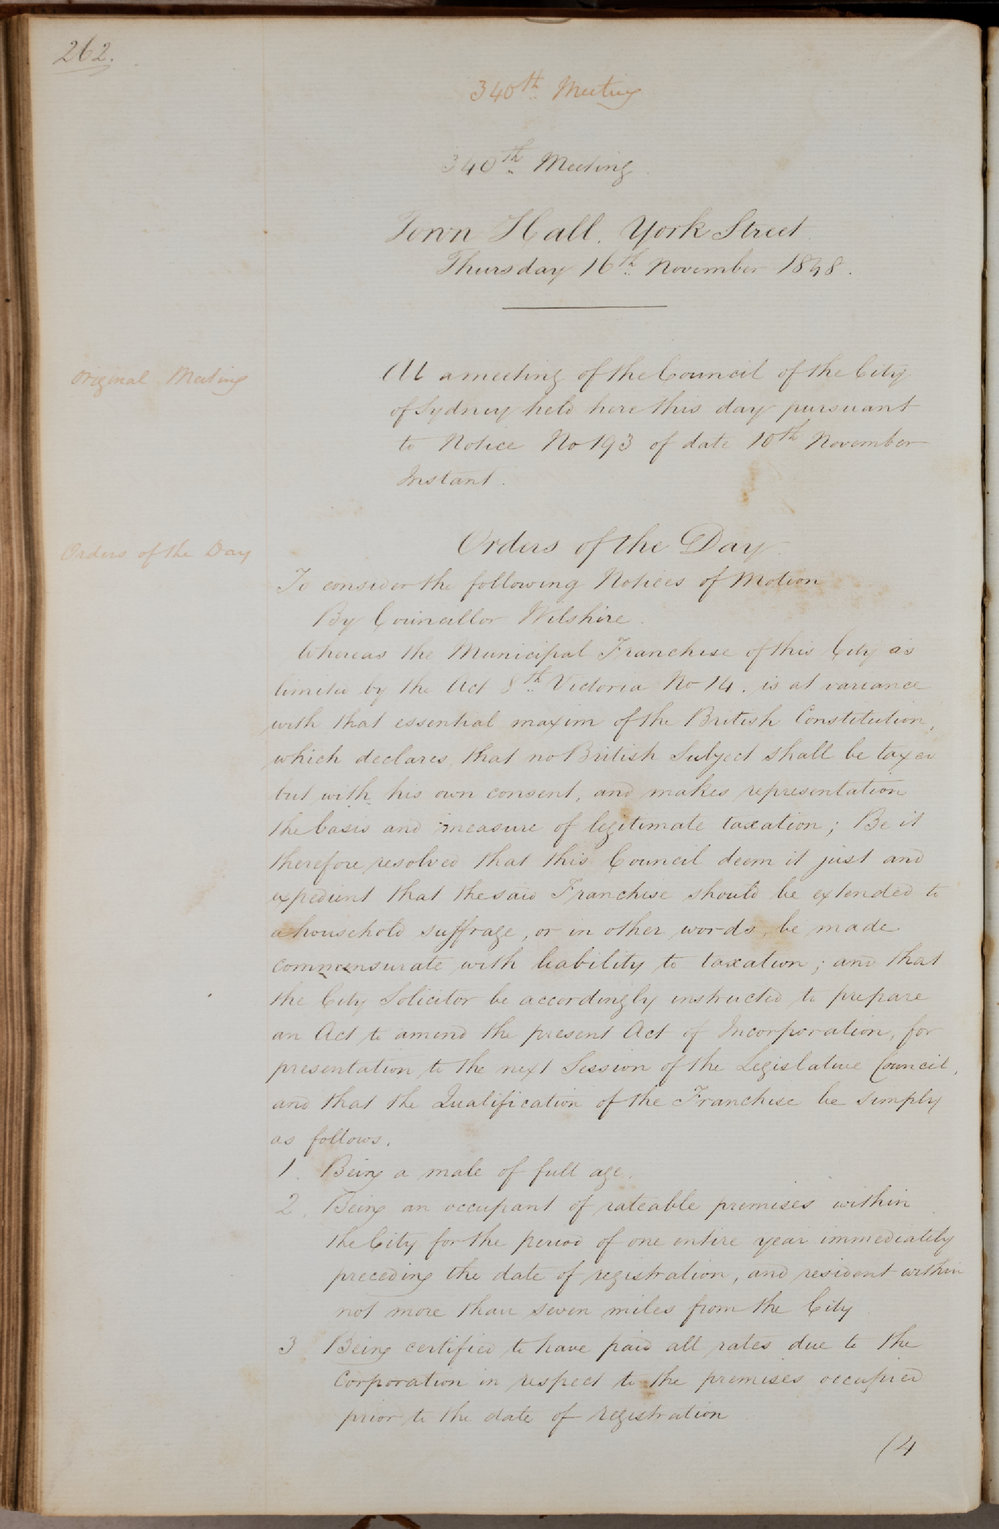 262.
340th Meeting
340th Meeting
Town Hall, York Street
Thursday 16th November 1848.
Original Meeting
At a meeting of the Council of the City
of Sydney held here this day pursuant
to Notice No 193 of date 10th November
Instant.
Orders of the Day
Orders of the Day
To consider the following Notices of Motion
By Councillor Wilshire.
Whereas the Municipal Franchise of this City as
limited by the Act 8th Victoria No 14. is at variance
with that essential maxim of the British Constitution,
which declares that no British Subject shall be taxed
but with his own consent, and makes representation
the basis and measure of legitimate taxation; Be it
therefore resolved that this Council deem it just and
expedient that the said Franchise should be extended to
a household suffrage, or in other words, be made
commensurate with liability to taxation; and that
the City Solicitor be accordingly instructed to prepare
an Act to amend the present Act of Incorporation, for
presentation to the next Session of the Legislative Council,
and that the Qualification of the Franchise be simply
as follows.
1. Being a male of full age.
2. Being an occupant of rateable premises within
the City for the period of one entire year immediately
preceding the date of registration, and resident within
not more than seven miles from the City
3 Being certified to have paid all rates due to the
Corporation in respect to the premises occupied
prior to the date of registration
(4